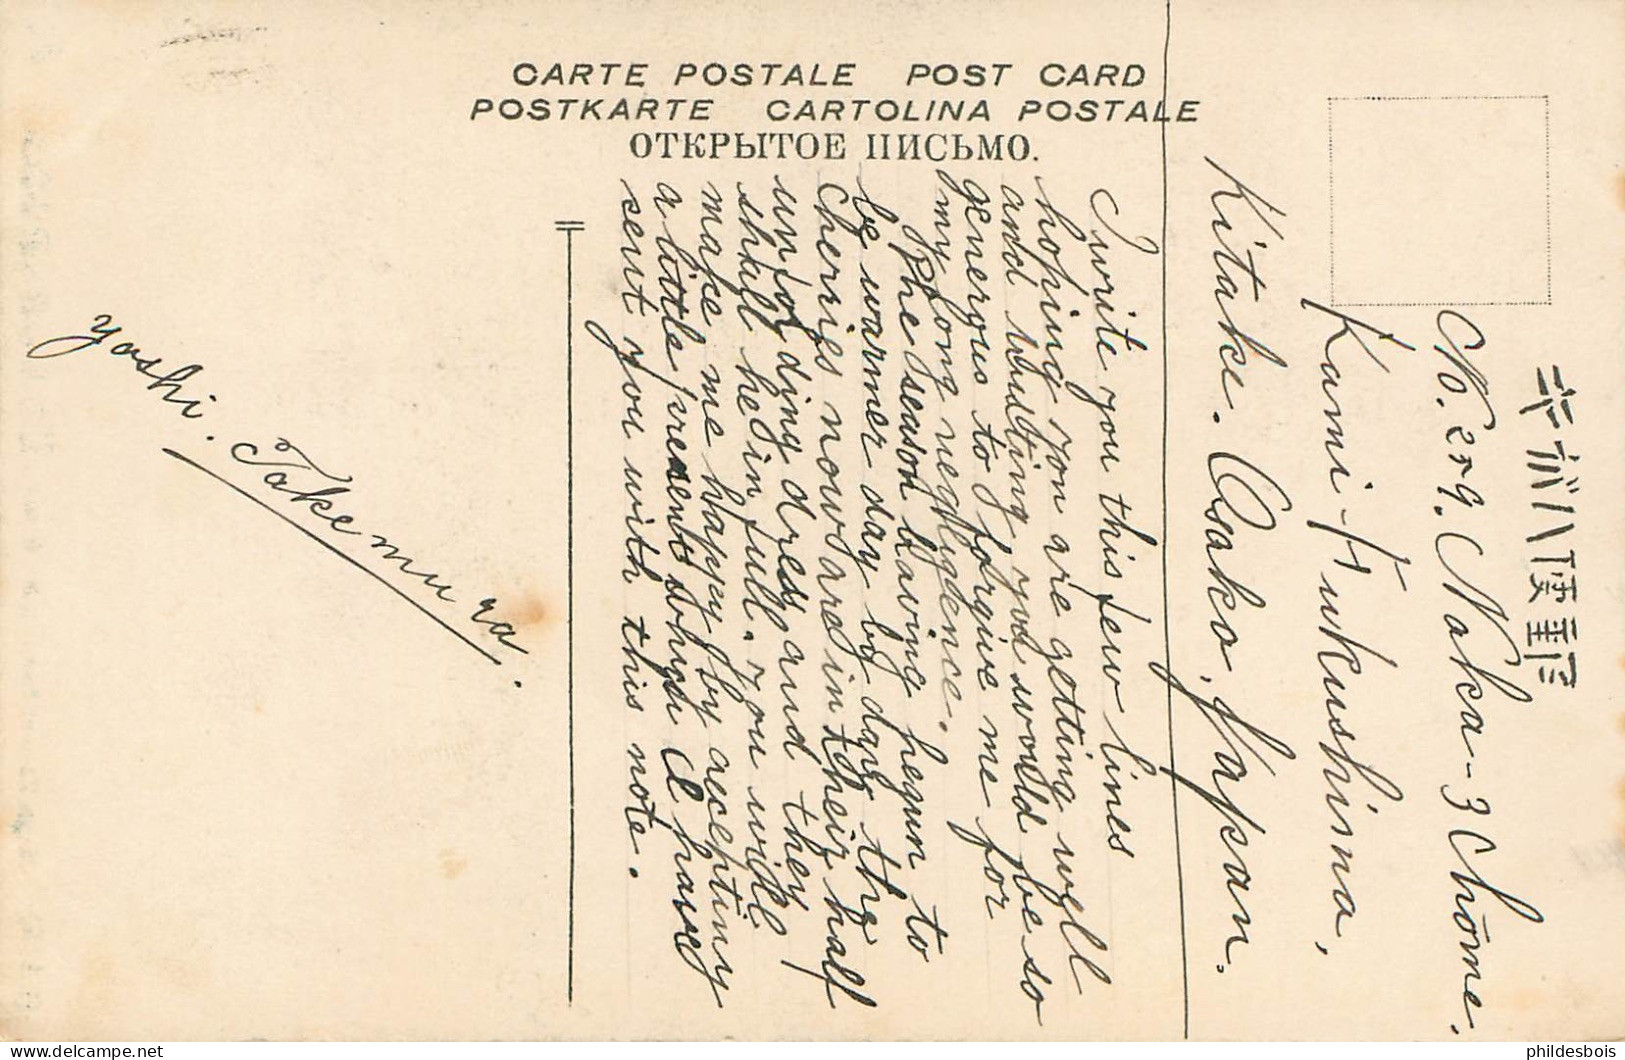 CARTE POSTALE POST CARD
POSTKARTE CARTOLINA POSTALE
ОТКРЫТОЕ ПИСЬМО.
郵便はかき
No. 259. Naka-3 Chōme.
Kami-Fukushima,
Kitaku. Osaka, Japan.
I write you this few lines
hoping yon are getting well
and wusting yod would be so
generous to forgive me for
my long negligence.
The season having hegun to
be warmer day by day the
cherries now are in their half
unfolding dress and they
shall be in full. you will
make me happy by accepting
a little present which I have
sent you with this note.
Yoshi. Takemura.
phildesbois